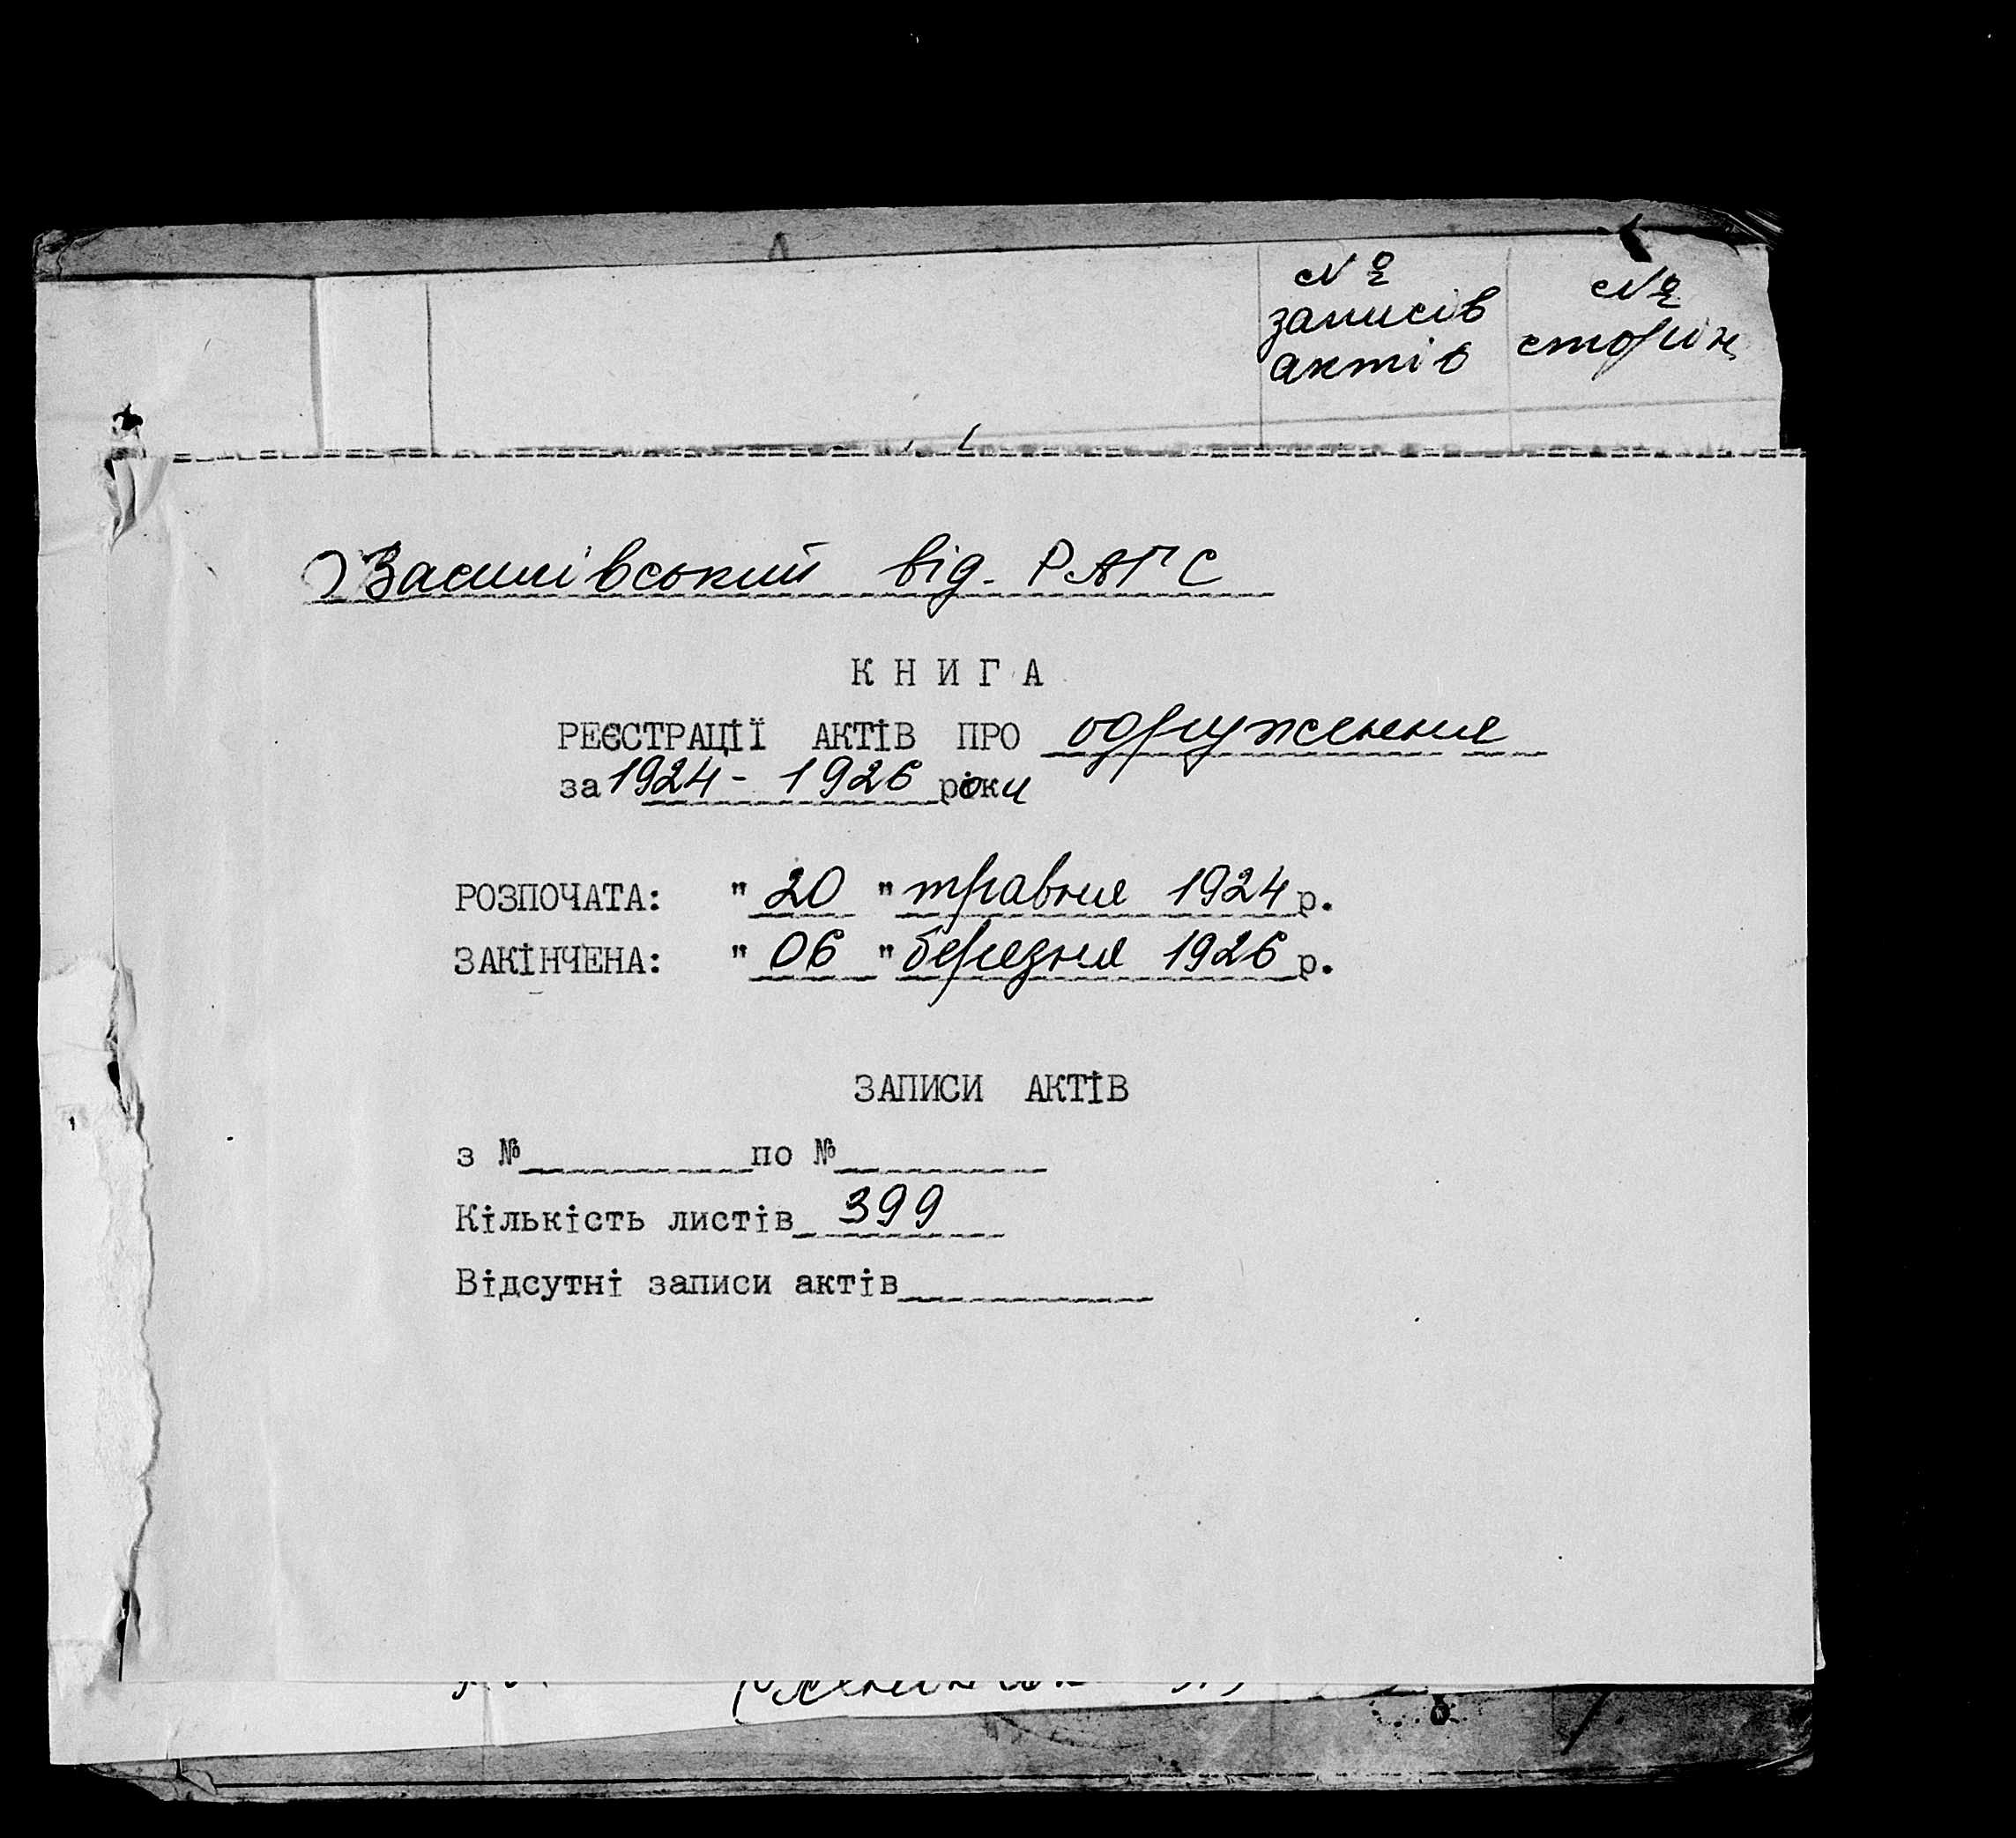 № записів актів
№ сторін
від. РАГС
КНИГА
РЕЄСТРАЦІЇ АКТІВ ПРО одруження
за 1924 - 1926 роки
РОЗПОЧАТА: "20" травня 1924 р.
ЗАКІНЧЕНА: "06" березня 1926 р.
ЗАПИСИ АКТІВ
з №__________по №__________
Кількість листів 399
Відсутні записи актів__________